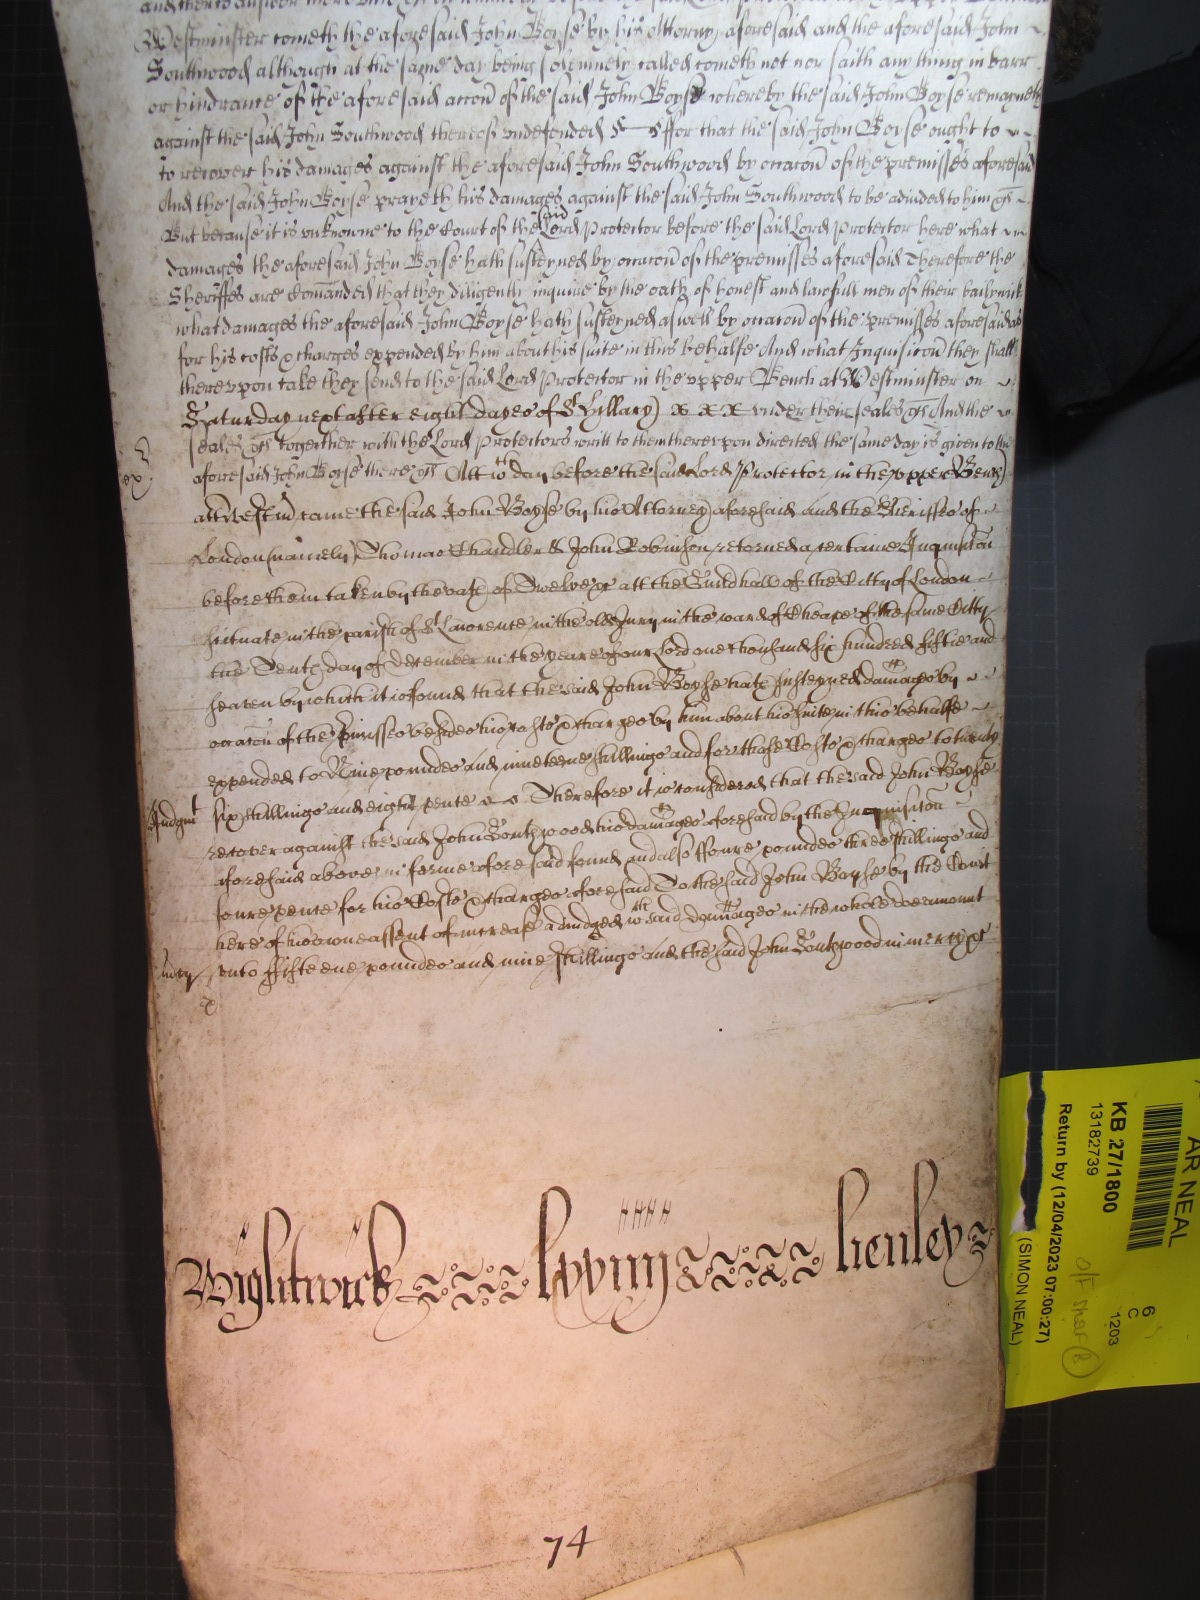 Westminster cometh the aforesaid John Boyse by his Attorny aforesaid and the aforesaid John
Southwood although at the same day being solemnely called cometh not nor saith any thing in barr
or hindrance of the aforesaid accon of the said John Boyse whereby the said John Boyse remayneth
against the said John Southwood thereof undefended ffor that the said John Boyse ought to
to recover his damages against the aforesaid John Southwood by occacon of the premisses aforesaid
And the said John Boyse prayeth his damages against the said John Southwood to be adiudged to him &c
But because it is unknowne to the Court of the said Lord Protector before the said Lord Protector here what
damages the aforesaid John Boyse hath susteyned by occacon of the premisses aforesaid Therefore the
Sheriffes are Comanded that they diligently inquire by the oath of honest and lawfull men of their bailywick
what damages the aforesaid John Boyse hath susteyned aswell by occacon of the premisses aforesaid as
for his costs & charges expended by him about his suite in this behalfe And what Inquisicon they shall
thereupon take they send to the said Lord Protector in the upper Bench at Westminster on
Saturday next after eight dayes of St Hillary x x x under their seales &c And the
seales &c together with the Lord Protectors writt to them thereupon directed the same day is given to the
aforesaid John Boyse there &c Att wch day before the said Lord Protector in the upper Bench
att Westm came the said John Boyse by his Attorney aforesaid and the Sheriffes of
London (namely) Thomas Chandler & John Robinson returned a certaine Inquisicon
before them taken by the oath of Twelve &c att the Guildhall of the Citty of London
scituate in the parish of St Lawrence in the old Jury in the ward of Cheape of the same Citty
the Tenth day of December in the yeare of our Lord one thousand six hundred fiftie and
seaven by which it is found that the said John Boyse hath susteyned damages by
occacon of the pmisses besides his costs & charges by him about his suite in this behalfe
expended to Nine poundes and nineteene shillings and for those Costs & charges to twenty
Judgmt six shillings and eight pence Therefore it is considered that the said John Boyse
recover against the said John Southwood his damages aforesaid by the Inquisicon
aforesaid above in forme aforesaid found and also ffoure poundes three shillings and
foure pence for his Costs & charges aforesaid To the said John Boyse by the Court
here of his owne assent of increase adiudged wch said damages in the whole doe amount
mercy unto ffifteene poundes and nine shillings and the said John Southwood in mercy &c
Wightwick lxxiiij henley
74
AR NEAL
KB 27/1800
13182739
Return by (12/04/2023 07:00:27)
(SIMON NEAL)
6
C
1203